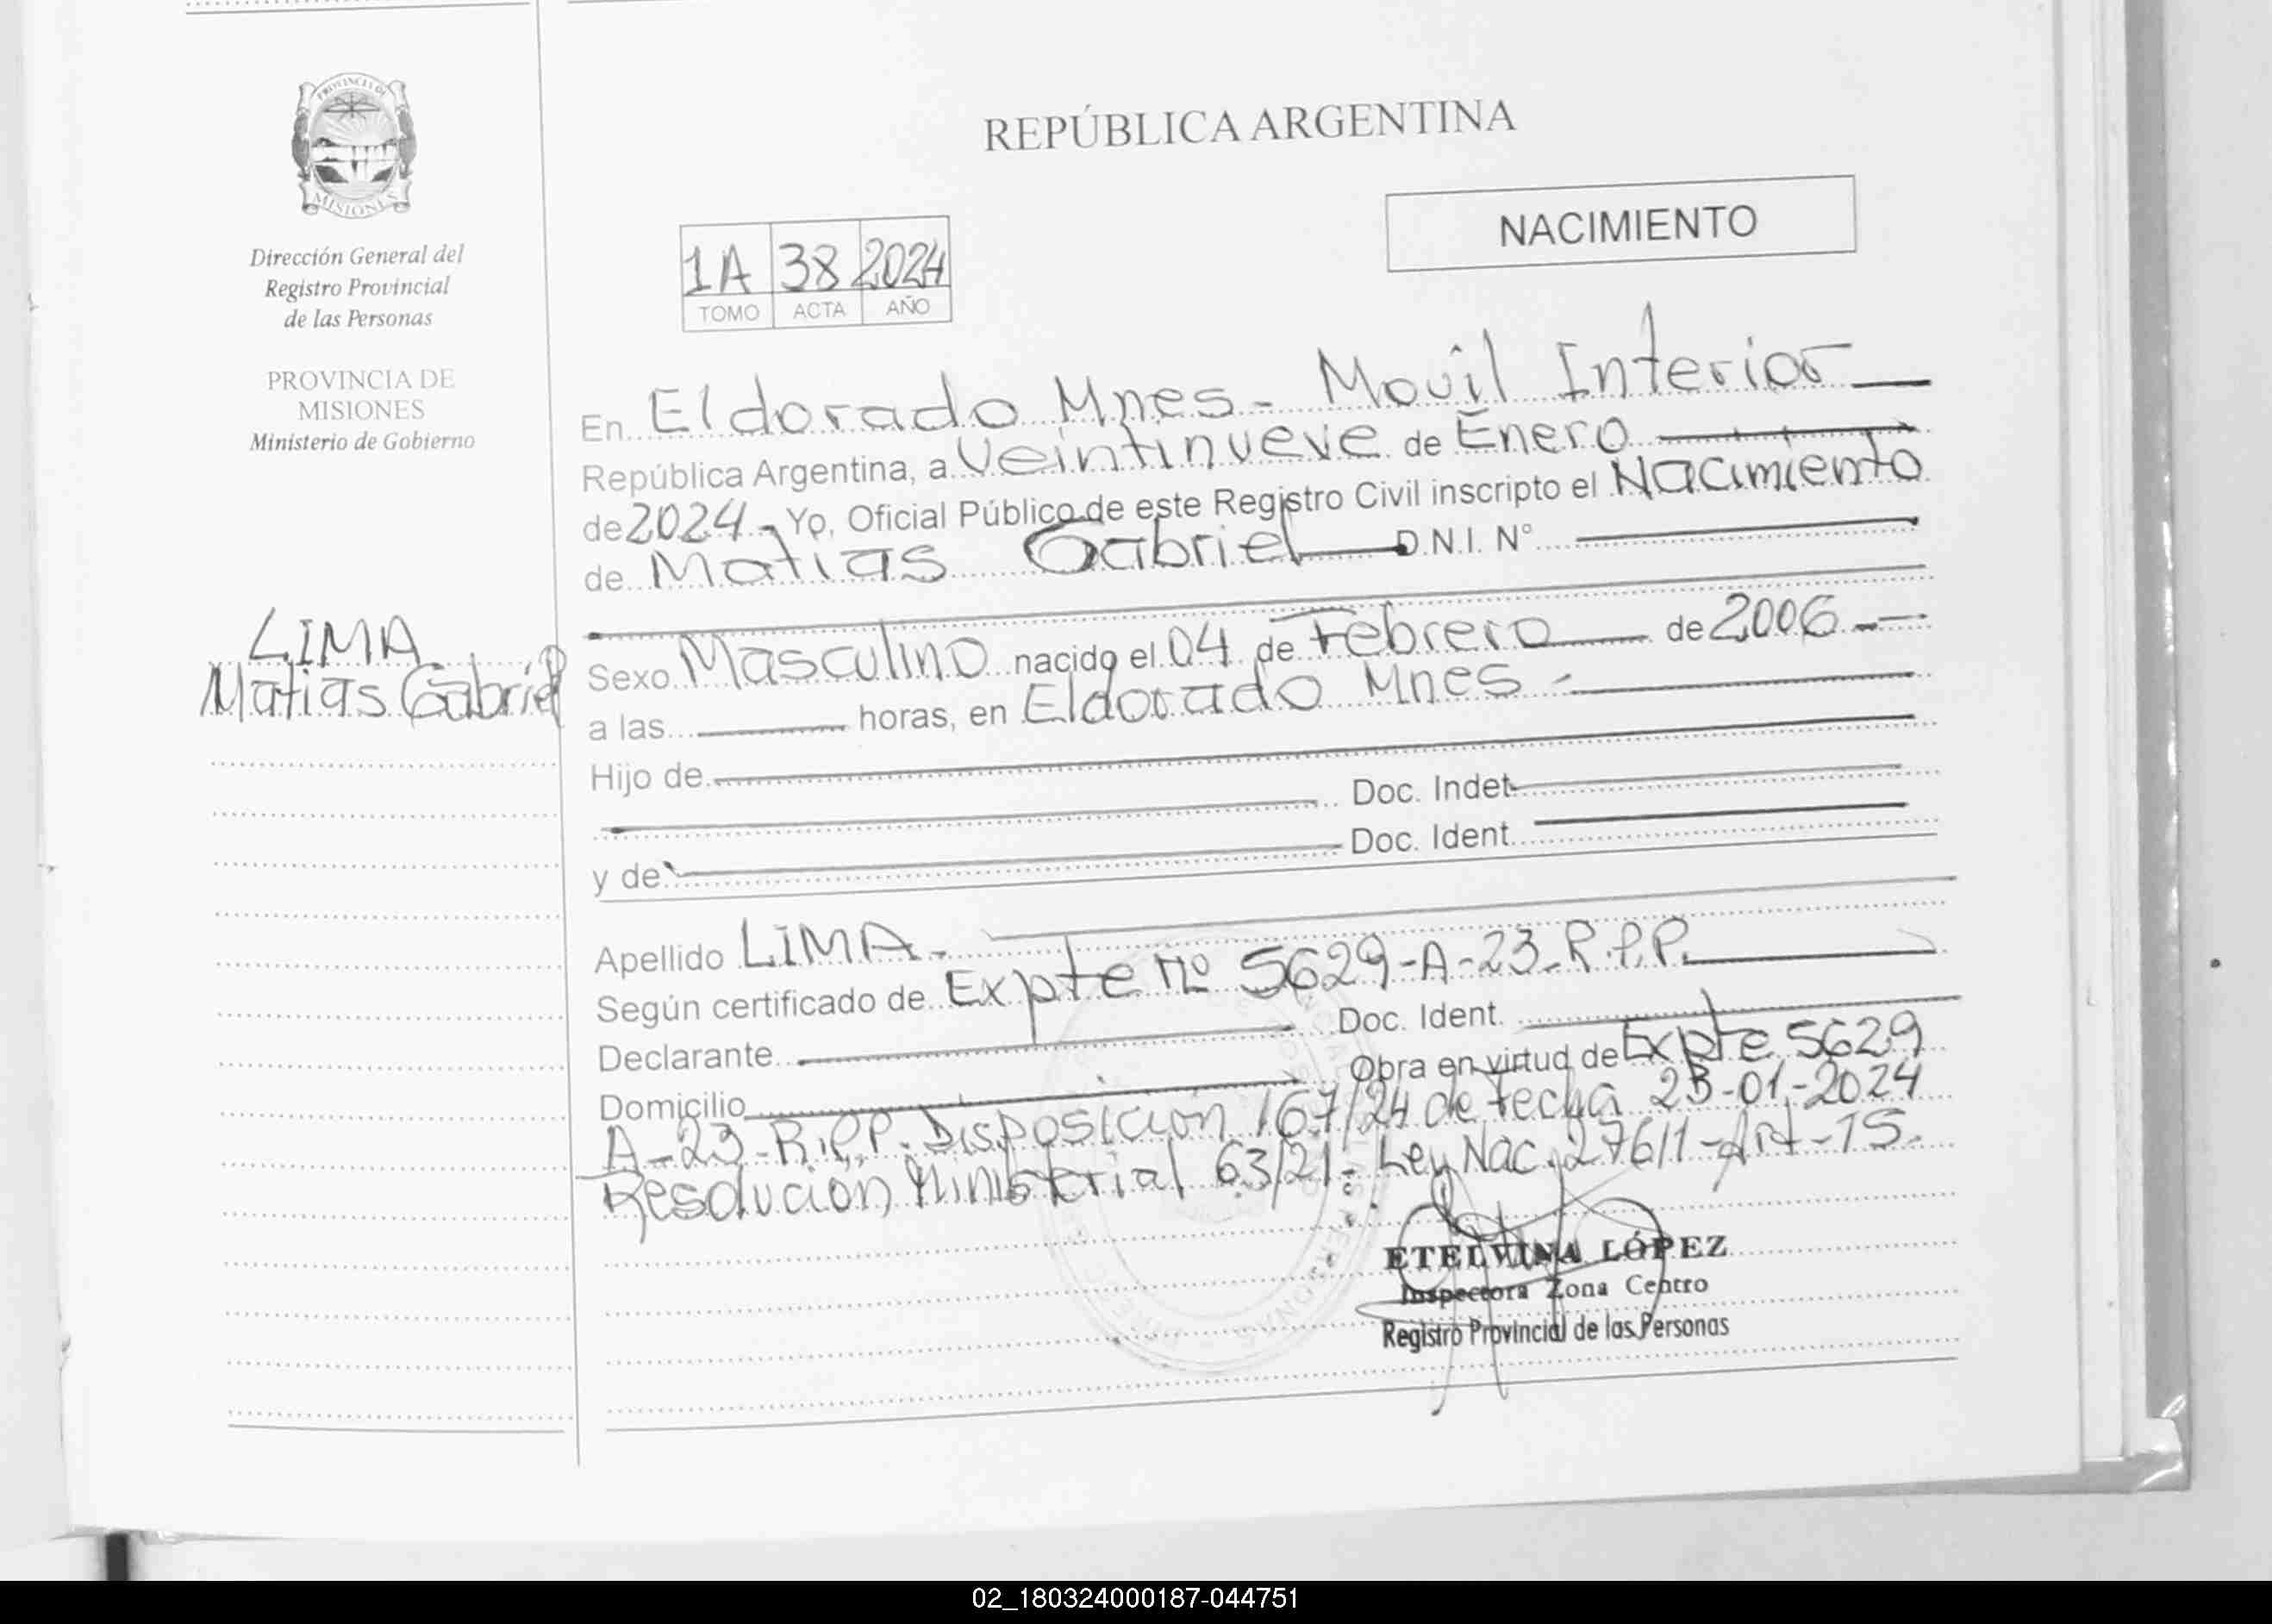 PROVINCIA DE
MISIONES
Dirección General del
Registro Provincial
de las Personas
PROVINCIA DE
MISIONES
Ministerio de Gobierno
LIMA
Matias Gabriel
REPÚBLICA ARGENTINA
NACIMIENTO
1A 38 2024
TOMO ACTA AÑO
En Eldorado Mnes - Movil Interior
República Argentina, a Veintinueve de Enero
de 2024 - Yo, Oficial Público de este Registro Civil inscripto el Nacimiento
de Matias Gabriel D.N.I. N°
Sexo Masculino nacido el 04 de Febrero de 2006 -
a las horas, en Eldorado Mnes -
Hijo de
Doc. Indet
y de Doc. Ident.
Apellido LIMA -
Según certificado de Expte nº 5629-A-23-R.P.P.
Declarante Doc. Ident.
Domicilio Obra en virtud de Expte 5629
A-23-R.P.P. Disposición 167/24 de fecha 23-01-2024
Resolución Ministerial 63/21- Ley Nac. 27611-Art-15.
ETELVINA LÓPEZ
Inspectora Zona Centro
Registro Provincial de las Personas
02_180324000187-044751